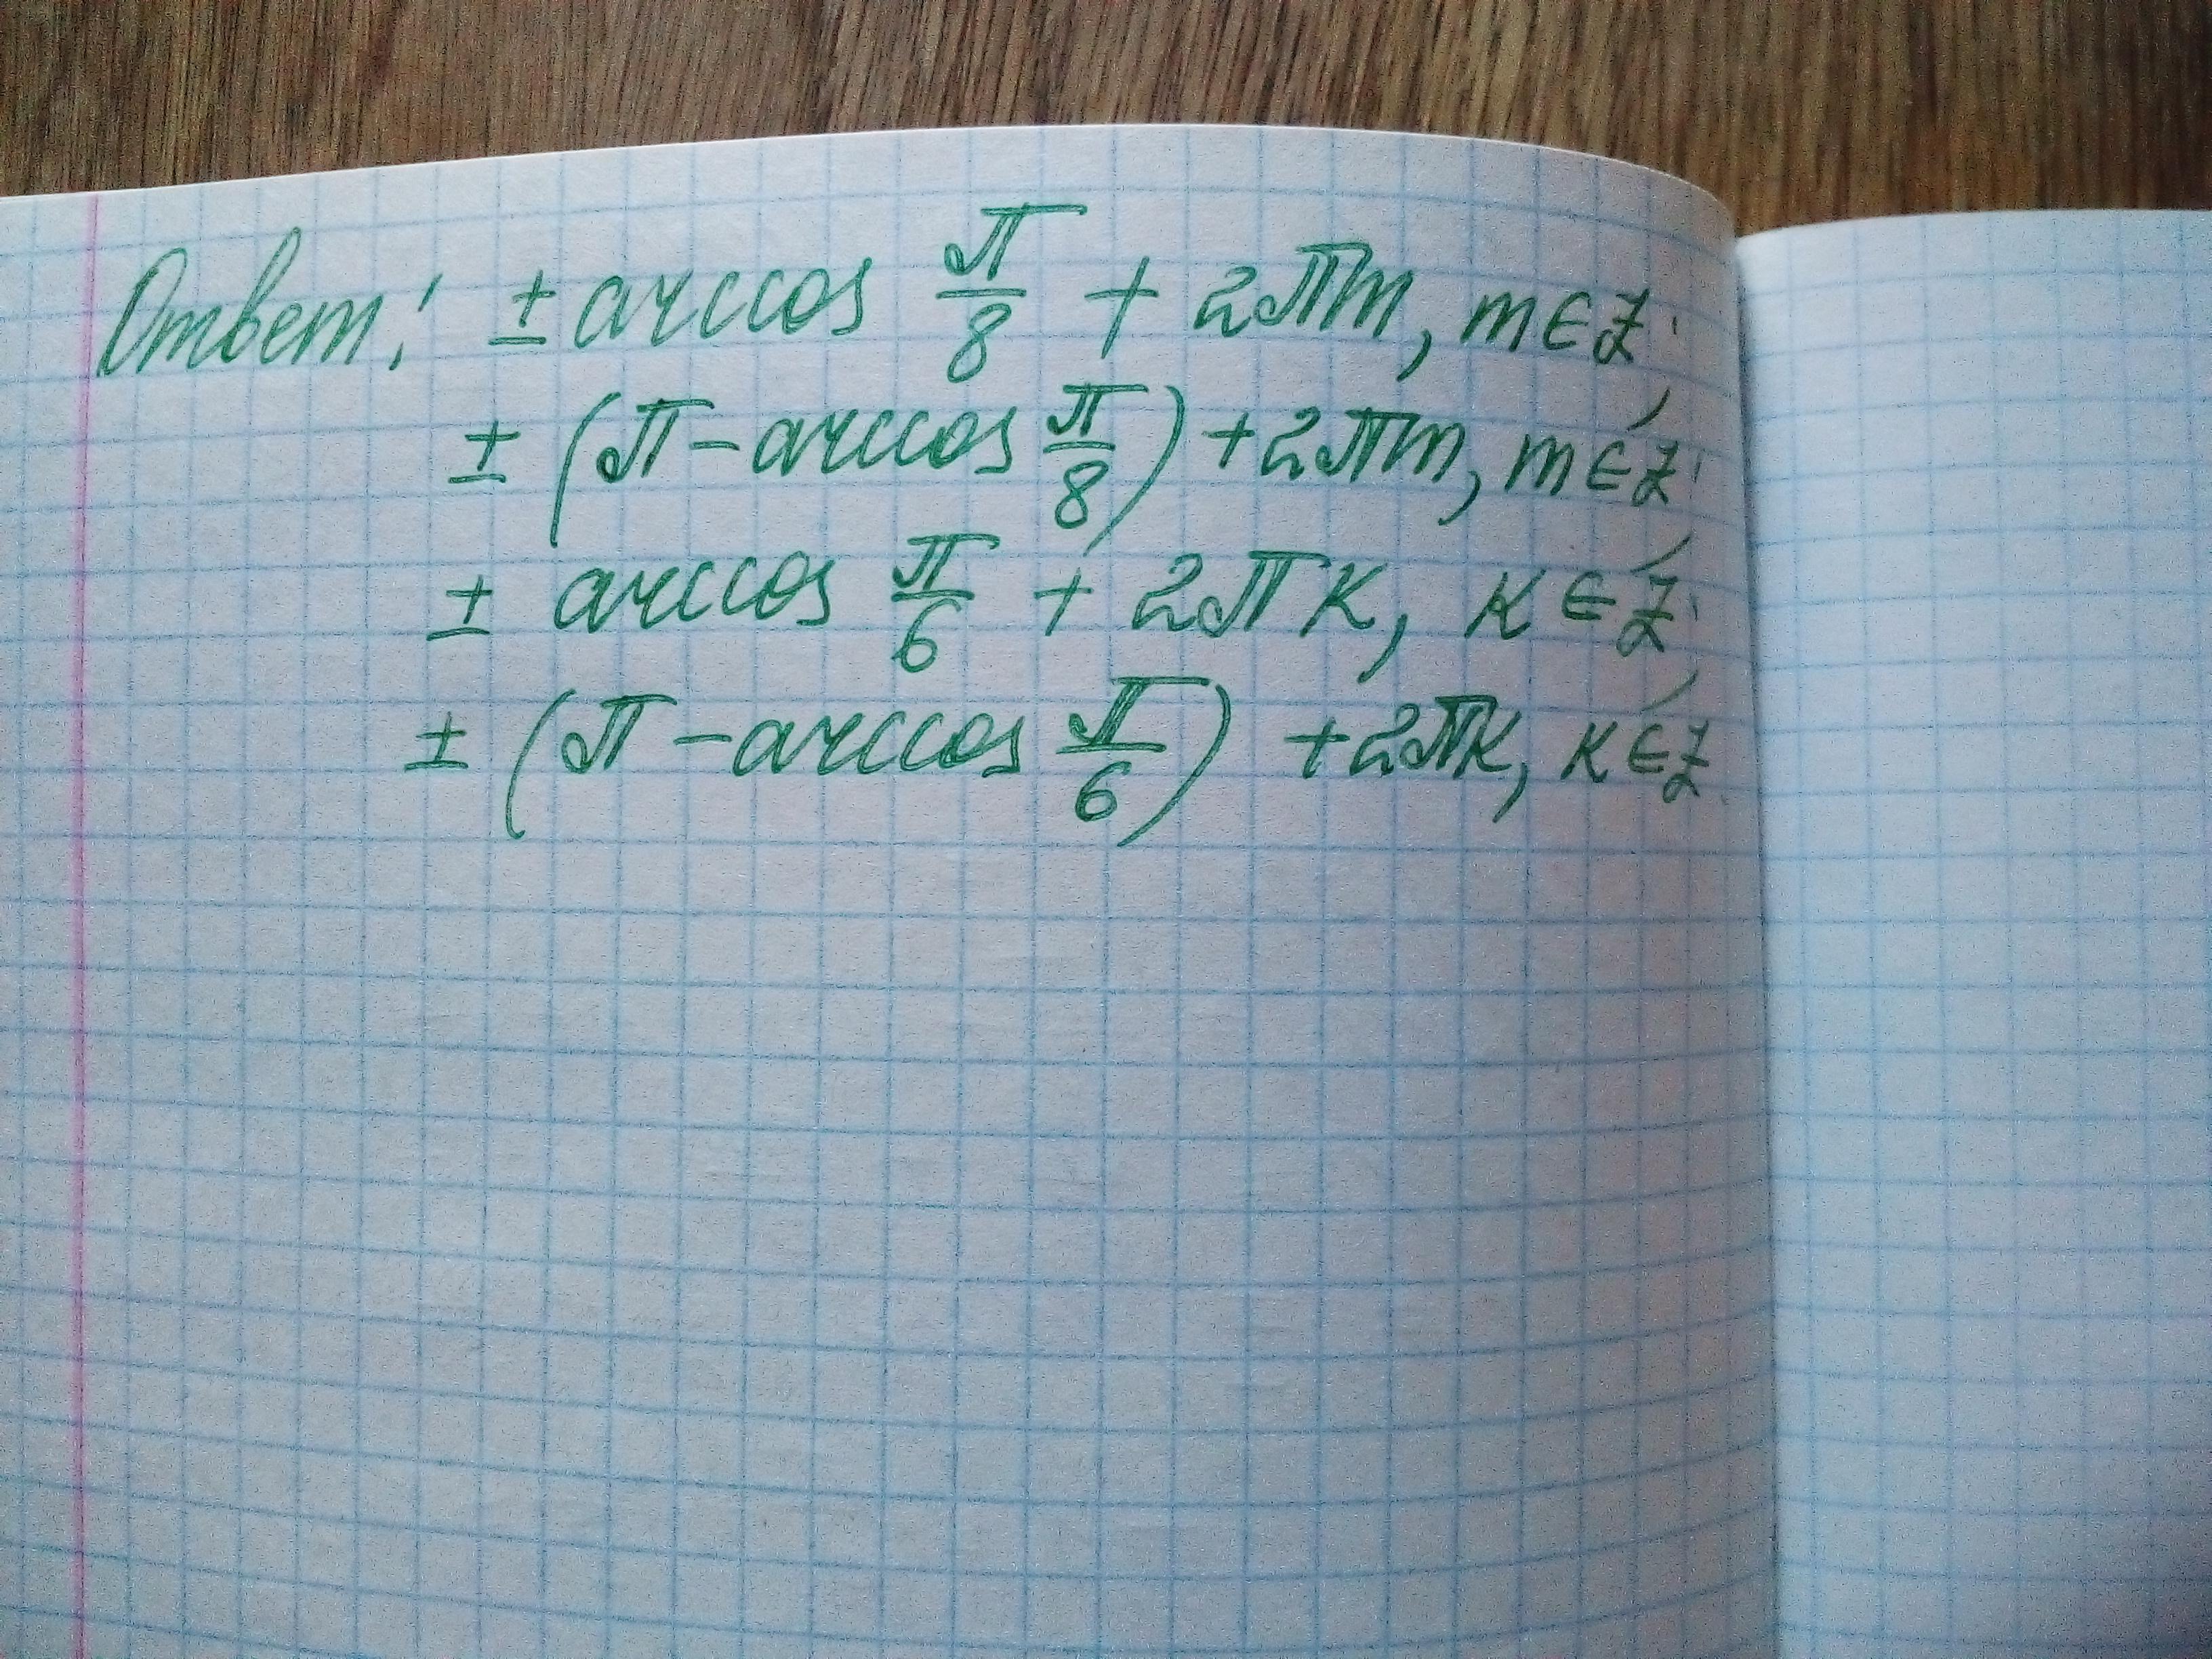 Ответ: ± arccos π/8 + 2πm, m ∈ Z;
± (π - arccos π/8) + 2πm, m ∈ Z;
± arccos π/6 + 2πк, к ∈ Z;
± (π - arccos π/6) + 2πк, к ∈ Z.